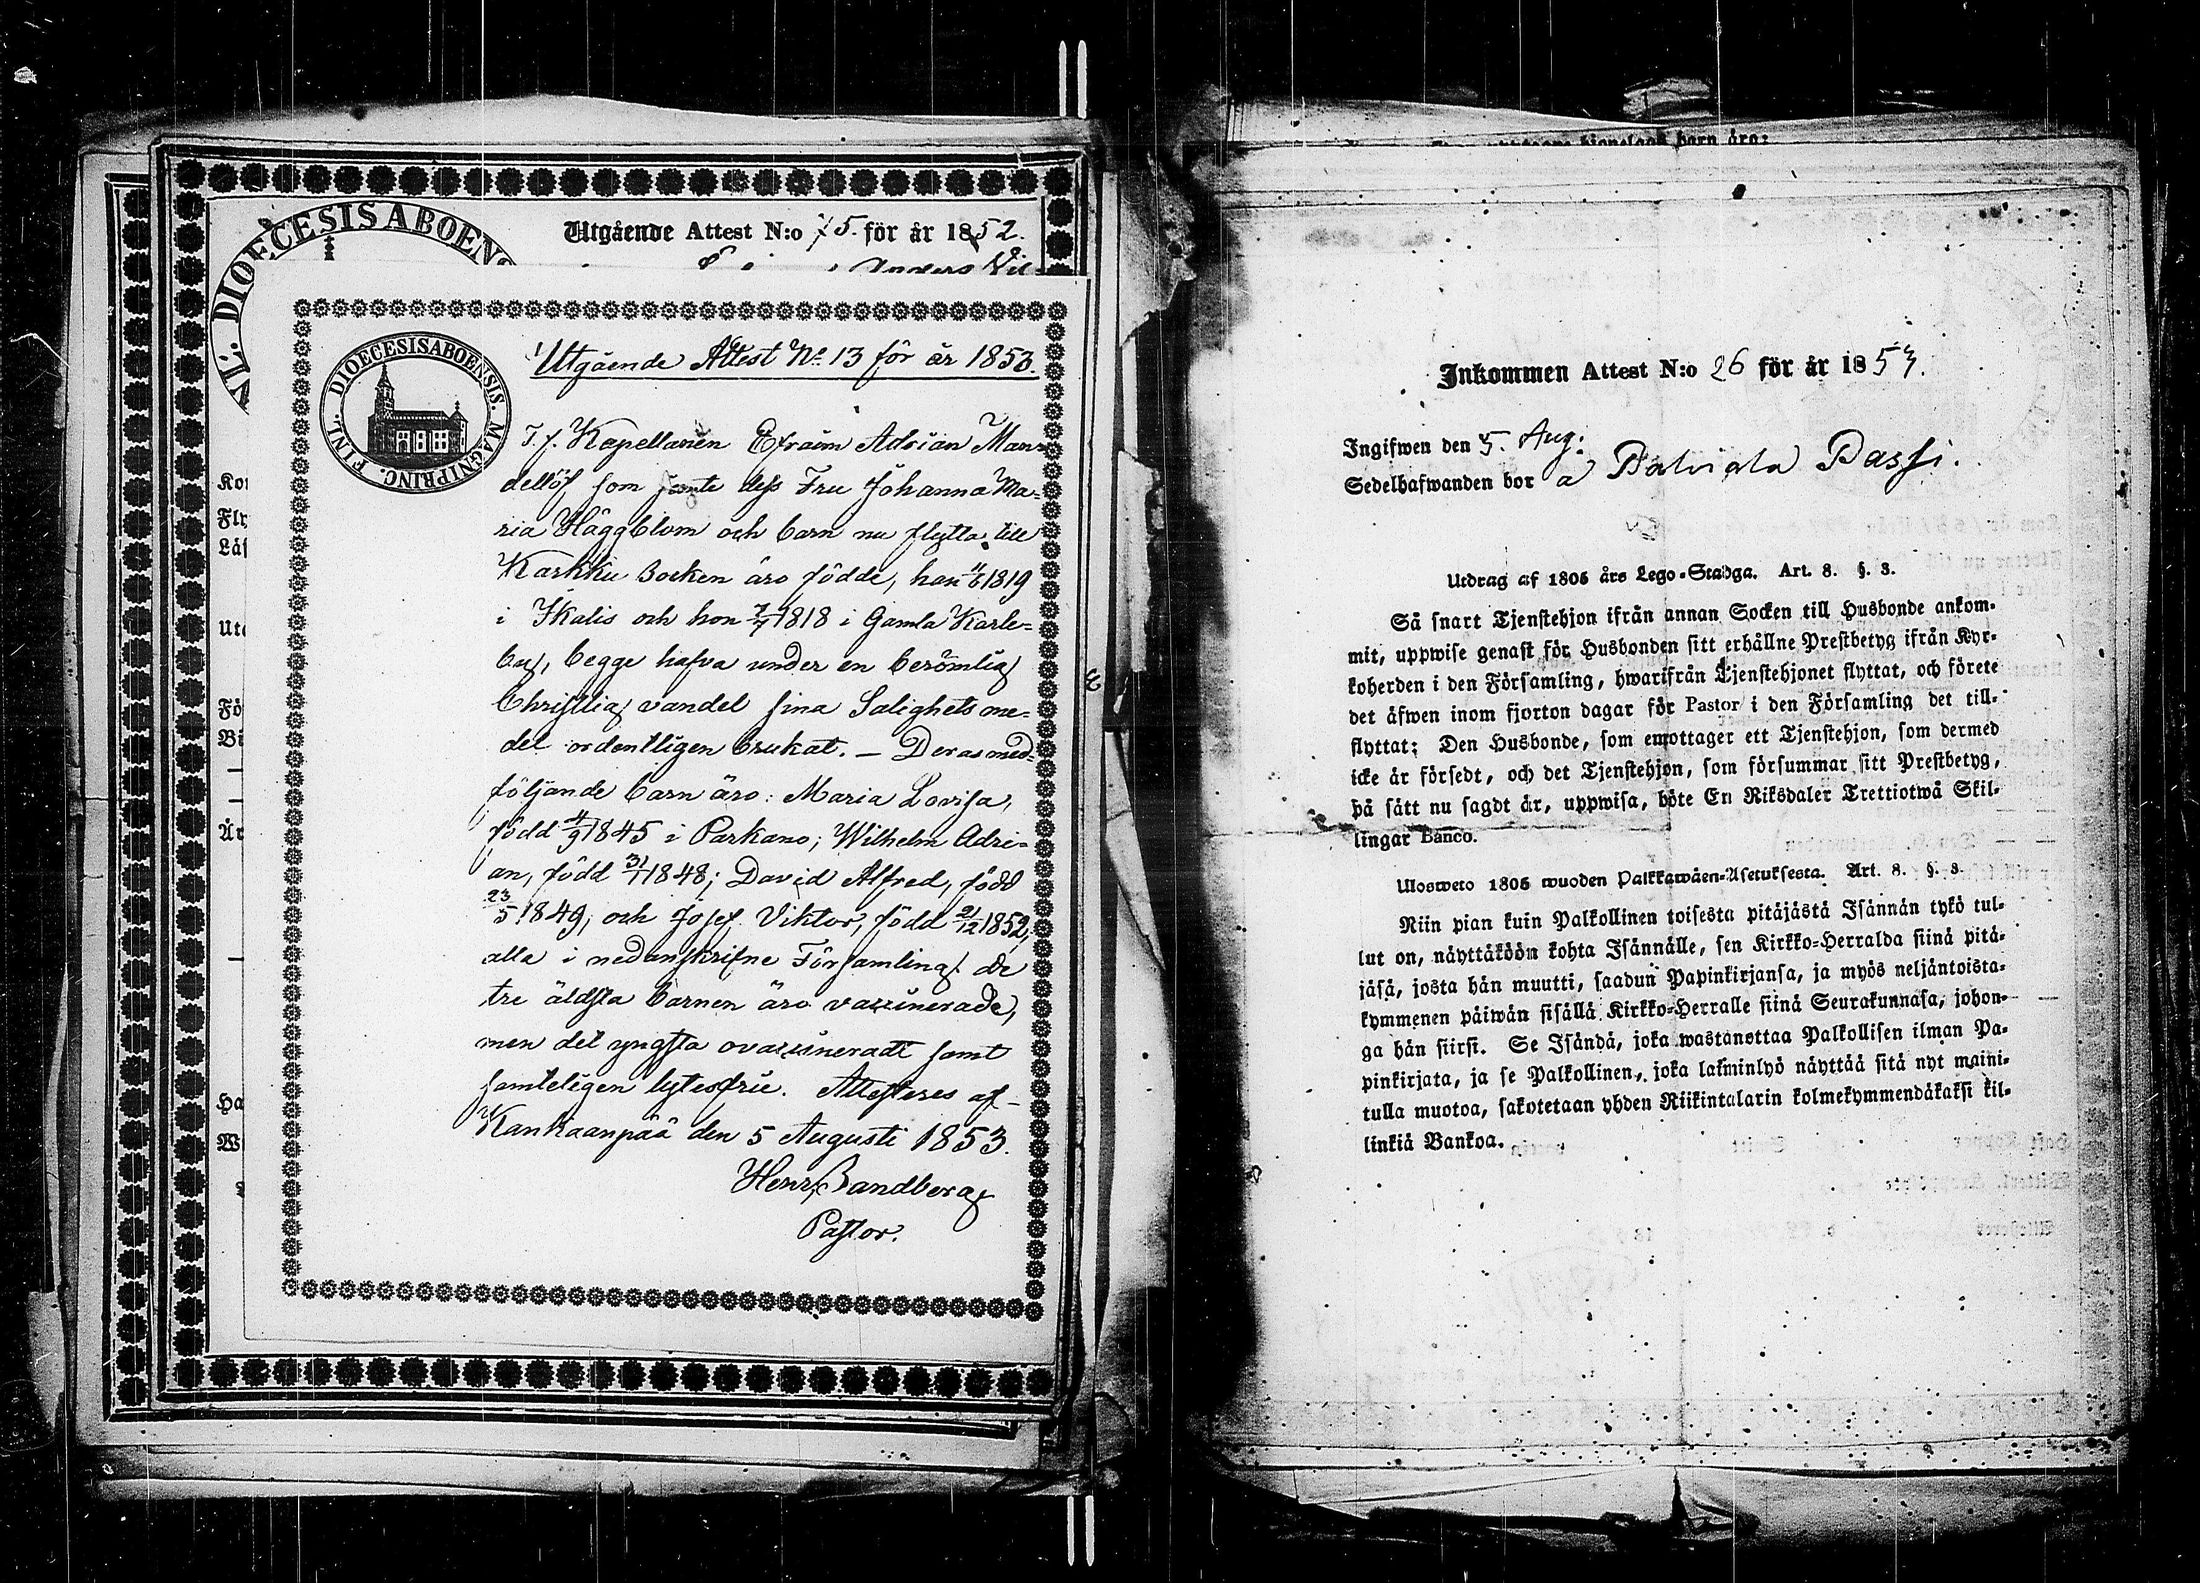 VL. DIOECESIS ABOENS
Utgående Attest N:o 75. för år 1852.
Anders Vil-
Kor
Fly
Läs
Ute
Fö
Bi
Är
Ha
W
DIOECESIS ABOENSIS. MAGNI PRINC. FINL.
Utgående Attest No 13 för år 1853.
T. f. Kapellanen Efraim Adrian Man-
dellöf som jemte dess Fru Johanna Ma-
ria Häggblom och barn nu flytta till
Karkku Socken äro födde, han 11/6 1819
i Ikalis och hon 7/7 1818 i Gamla Karle-
by, begge hafva under en berömlig
Christlig vandel sina Salighets me-
del ordentligen brukat. — Deras med-
följande barn äro: Maria Lovisa,
född 4/9 1845 i Parkano; Wilhelm Adri-
an, född 31/1 1848; David Alfred, född
23/5 1849, och Josef Viktor, född 21/12 1852,
alla i nedanskrifne Församling. de
tre äldsta barnen äro vaxinerade,
men det yngsta ovaxineradt samt
samteligen lytesfrie. Attesteres af
Kankaanpää den 5 Augusti 1853.
Henr. Sandberg
Pastor.
barn äro:
Inkommen Attest N:o 26 för år 1853.
Ingifwen den 5. Aug:
Sedelhafwanden bor a Palviala Passi.
Utdrag af 1805 års Lego-Stadga. Art. 8. §. 3.
Så snart Tjenstehjon ifrån annan Socken till Husbonde ankom-
mit, uppwise genast för Husbonden sitt erhållne Prestbetyg ifrån Kyr-
koherden i den Församling, hwarifrån Tjenstehjonet flyttat, och förete
det äfwen inom fjorton dagar för Pastor i den Församling det till-
flyttat; Den Husbonde, som emottager ett Tjenstehjon, som dermed
icke är försedt, och det Tjenstehjon, som försummar sitt Prestbetyg,
på sätt nu sagdt är, uppwisa, böte En Riksdaler Trettiotwå Skil-
lingar Banco.
Ulosweto 1805 wuoden Palkkawäen-Asetuksesta. Art. 8. §. 3.
Niin pian kuin Palkollinen toisesta pitäjästä Isännän tykö tul-
lut on, näyttäköön kohta Isännälle, sen Kirkko-Herralda siinä pitä-
jäsä, josta hän muutti, saadun Papinkirjansa, ja myös neljäntoista-
kymmenen päiwän sisällä Kirkko-Herralle siinä Seurakunnasa, johon-
ga hän siirsi. Se Isändä, joka wastanottaa Palkollisen ilman Pa-
pinkirjata, ja se Palkollinen, joka laiminlyö näyttää sitä nyt maini-
tulla muotoa, sakotetaan yhden Riikintalarin kolmekymmendäkaksi kil-
linkiä Bankoa.